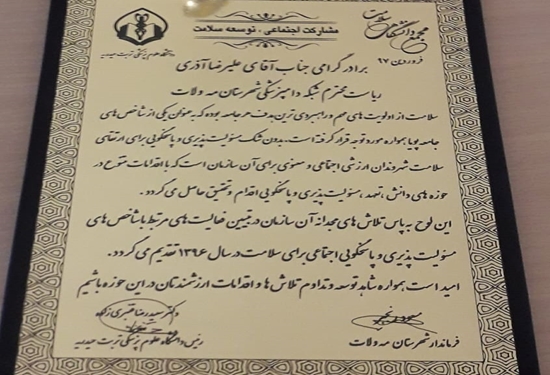 مجمع
سلامت
فروردین ۹۷
مشارکت اجتماعی ، توسعه سلامت
دانشگاه علوم پزشکی تربت حیدریه
برادر گرامی جناب آقای علیرضا آذری
ریاست محترم شبکه دامپزشکی شهرستان مه ولات
سلامت از اولویت های مهم و راهبردی ترین هدف هر جامعه بوده که به عنوان یکی از شاخص های
جامعه پویا همواره مورد توجه قرار گرفته است. بدون شک مسئولیت پذیری و پاسخگویی برای ارتقای
سلامت شهروندان ارزشی اجتماعی و معنوی برای آن سازمان است که با اقدامات متنوع در
حوزه های دانش، تعهد، مسئولیت پذیری و پاسخگویی اقدام و تحقق حاصل می گردد.
این لوح به پاس تلاش های مجدانه آن سازمان در تبیین فعالیت های مرتبط با شاخص های
مسئولیت پذیری و پاسخگویی اجتماعی برای سلامت در سال ۱۳۹۶ تقدیم می گردد.
امید است همواره شاهد توسعه و تداوم تلاش ها و اقدامات ارزشمندتان در این حوزه باشیم
دکتر سیدرضا قنبری زاده
فرماندار شهرستان مه ولات
رئیس دانشگاه علوم پزشکی تربت حیدریه